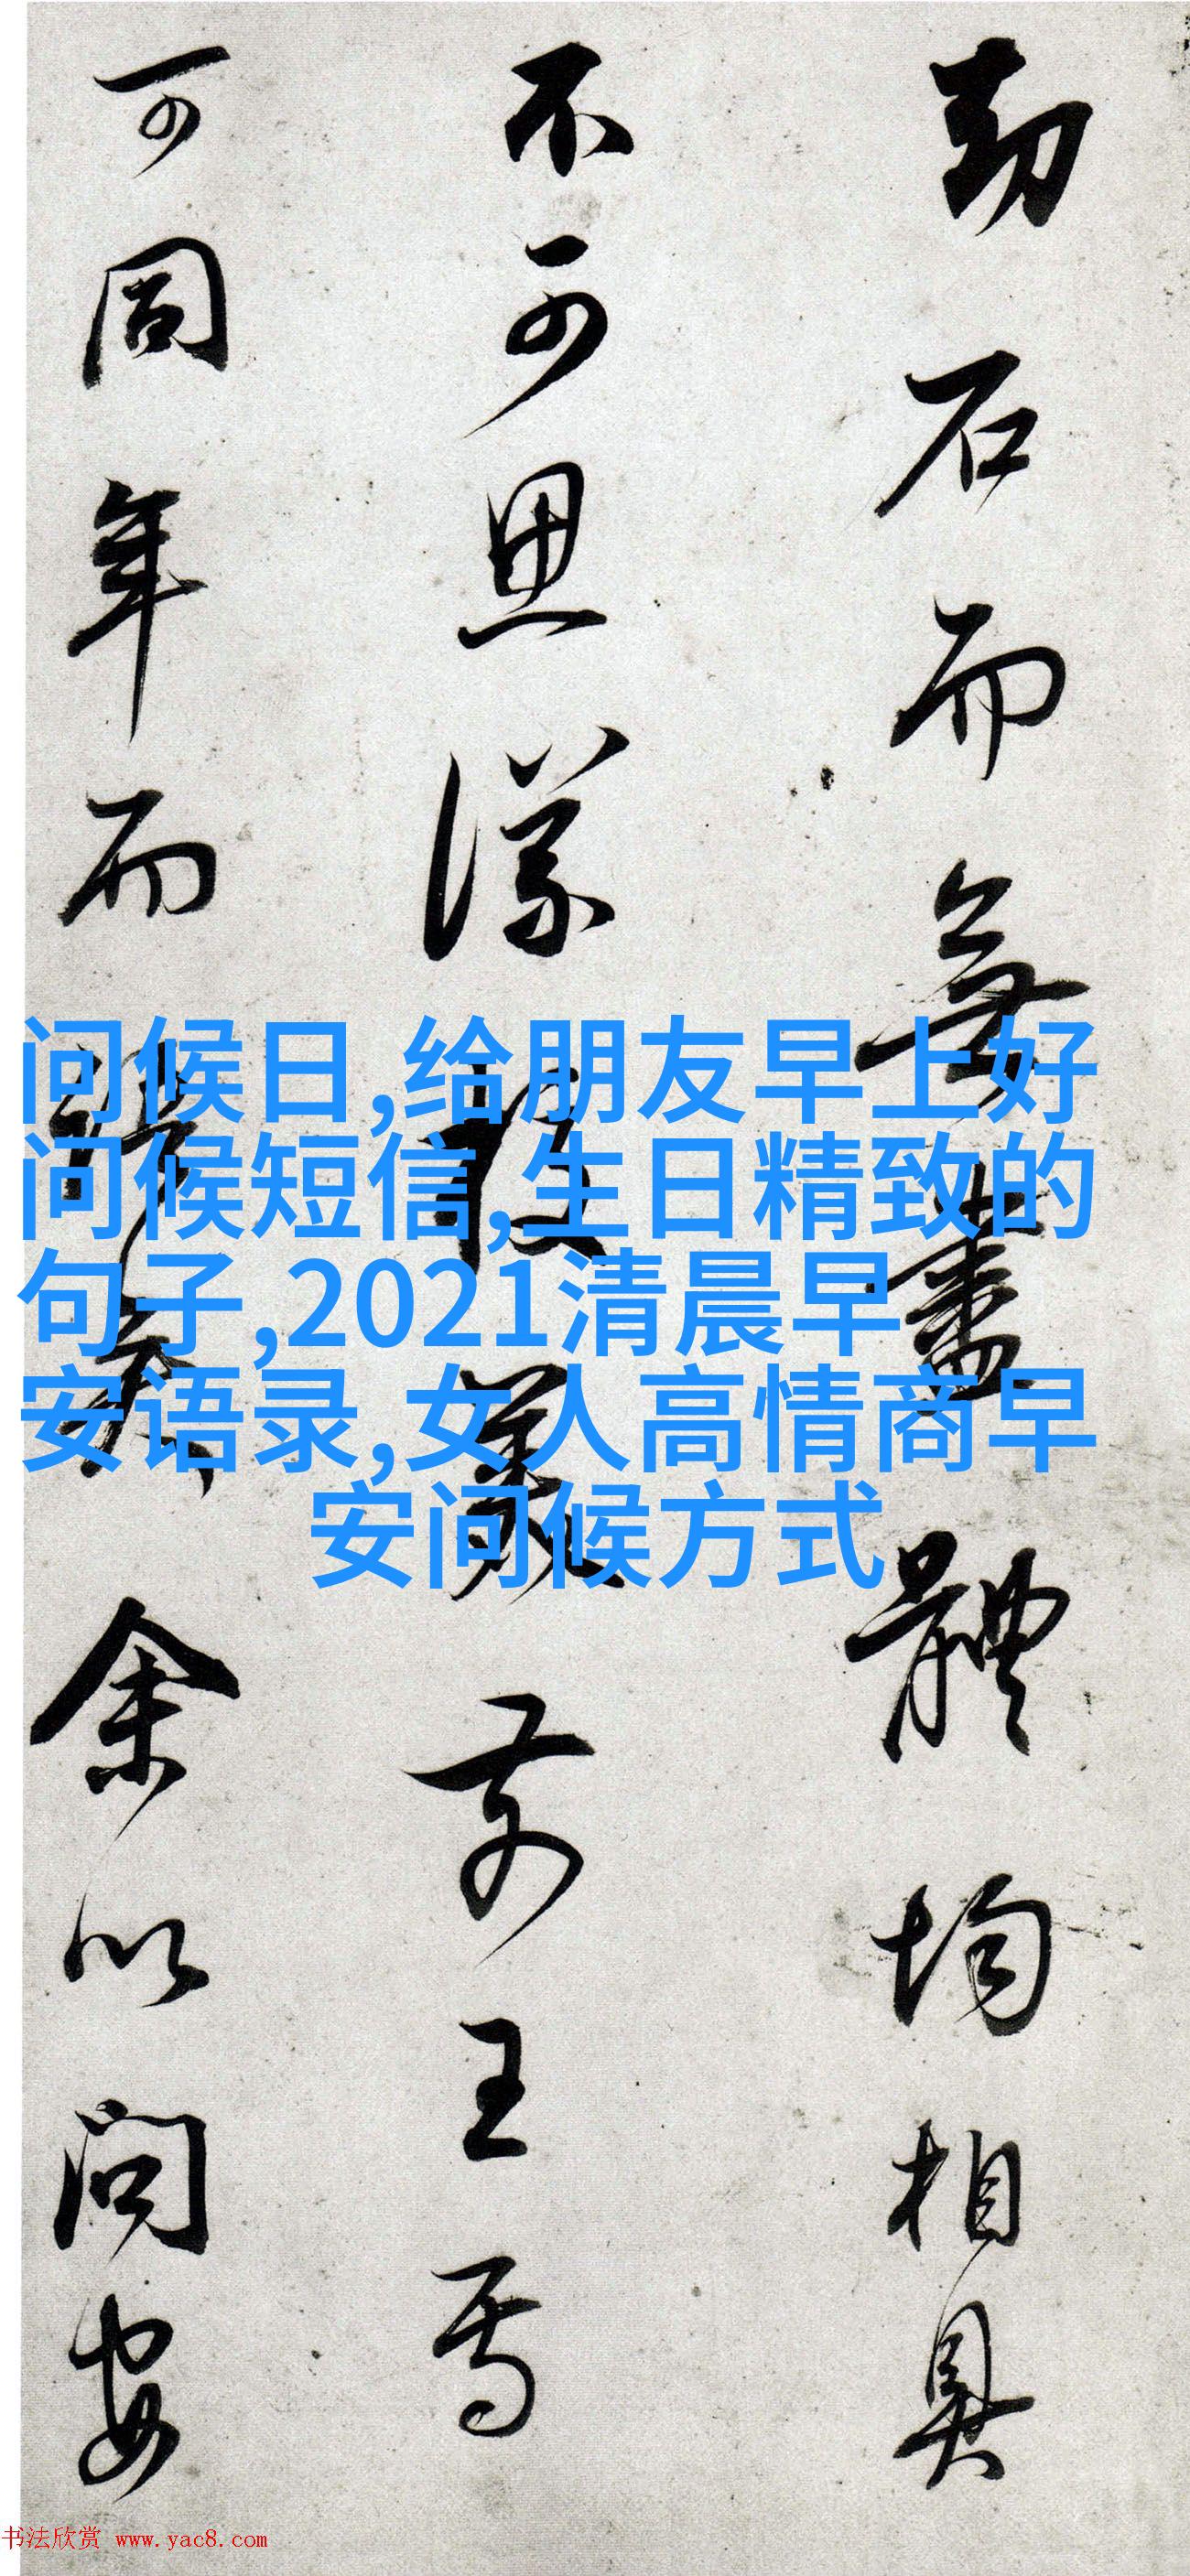 劫石而無盡體均相具
不可思議後義前王焉
可同年而語矣余以問安
问候日,给朋友早上好
问候短信,生日精致的
句子,2021清晨早
安语录,女人高情商早
安问候方式
书法欣赏 www.yac8.com